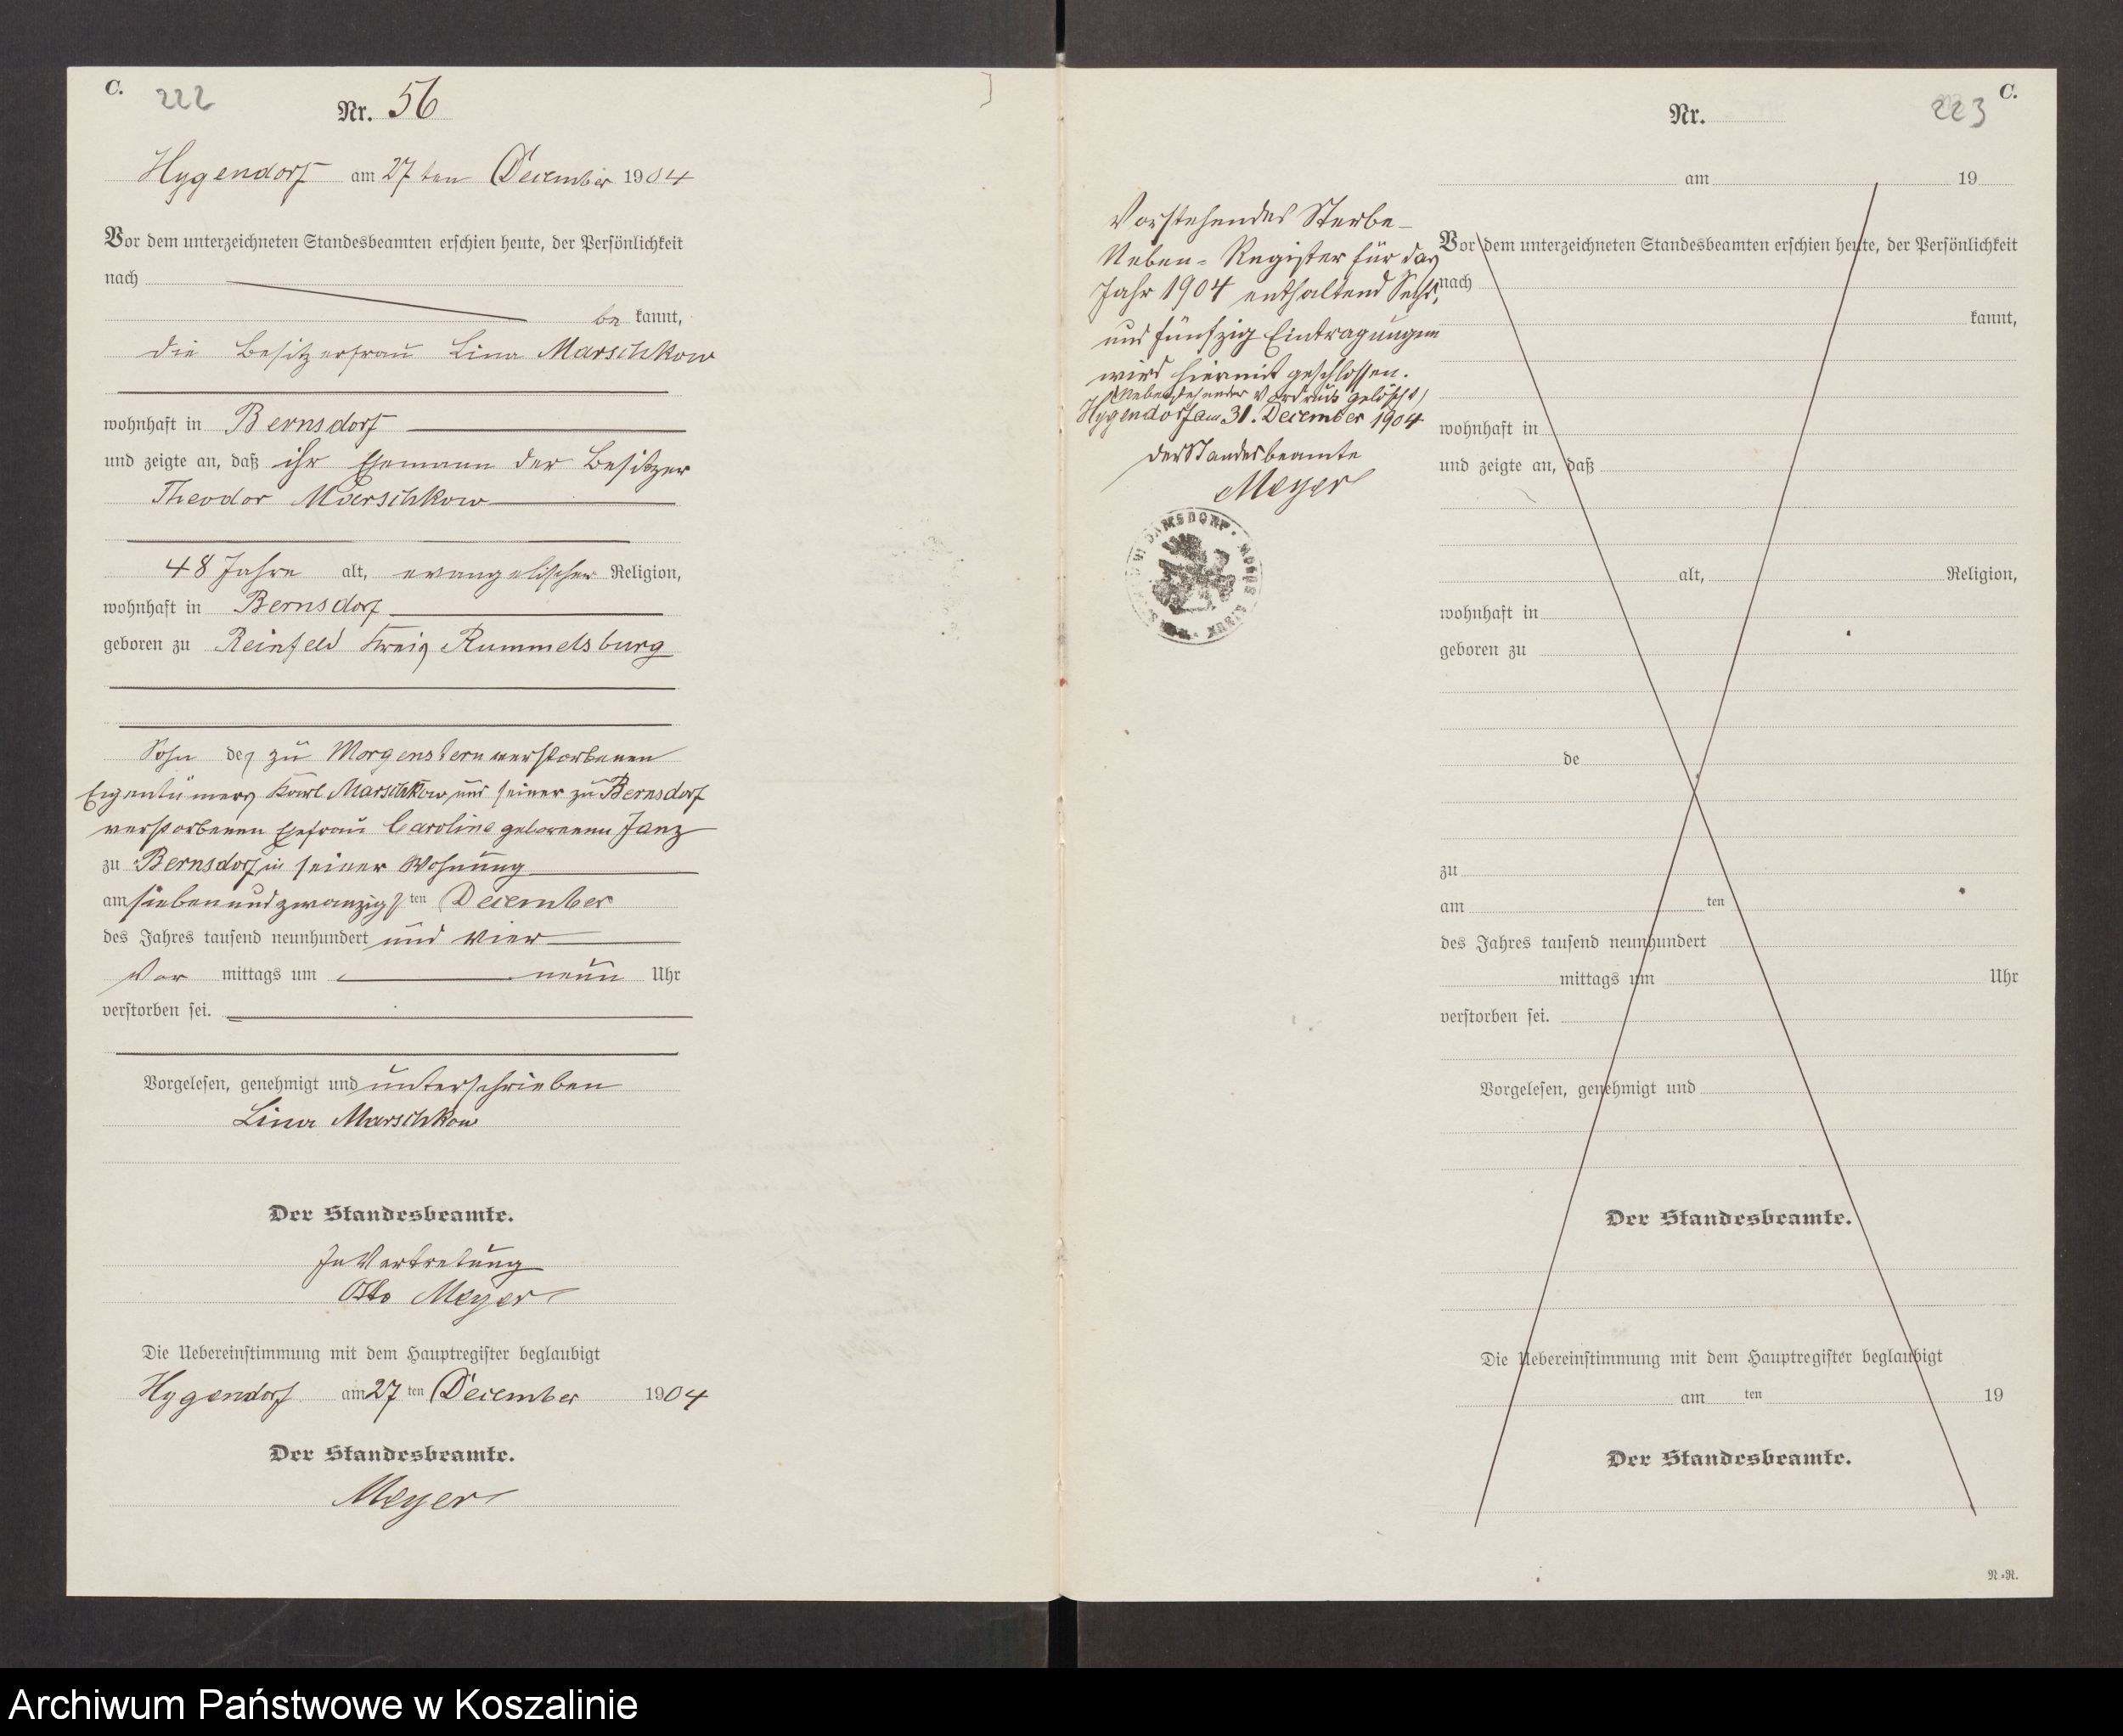 C.
222
Nr. 56
Hygendorf am 27 ten December 1904
Vor dem unterzeichneten Standesbeamten erschien heute, der Persönlichkeit
nach
be kannt,
die Besitzerfrau Lina Marschkow
wohnhaft in Bernsdorf
und zeigte an, daß ihr Ehemann der Besitzer
Theodor Marschkow
48 Jahre alt, evangelischer Religion,
wohnhaft in Bernsdorf
geboren zu Reinfeld Kreis Rummelsburg
Sohn des zu Morgenstern verstorbenen
Eigentümers Karl Marschkow und seiner zu Bernsdorf
verstorbenen Ehefrau Caroline geborenen Janz
zu Bernsdorf in seiner Wohnung
am siebenundzwanzigs ten December
des Jahres tausend neunhundert und vier
Vor mittags um neun Uhr
verstorben sei.
Vorgelesen, genehmigt und unterschrieben
Lina Marschkow
Der Standesbeamte.
In Vertretung
Otto Meyer
Die Uebereinstimmung mit dem Hauptregister beglaubigt
Hygendorf am 27 ten December 1904
Der Standesbeamte.
Meyer
Vorstehendes Sterbe-
Neben-Register für das
Jahr 1904 enthaltend Sechs
und fünfzig Eintragungen
wird hiermit geschlossen.
(Nebenstehender Vordruck gelöscht)
Hygendorf am 31. December 1904
Der Standesbeamte
Meyer
DAMSDORF
KREIS
C.
223
Nr.
am 19
Vor dem unterzeichneten Standesbeamten erschien heute, der Persönlichkeit
nach
kannt,
wohnhaft in
und zeigte an, daß
alt, Religion,
wohnhaft in
geboren zu
de
zu
am ten
des Jahres tausend neunhundert
mittags um Uhr
verstorben sei.
Vorgelesen, genehmigt und
Der Standesbeamte.
Die Uebereinstimmung mit dem Hauptregister beglaubigt
am ten 19
Der Standesbeamte.
N.=R.
Archiwum Państwowe w Koszalinie